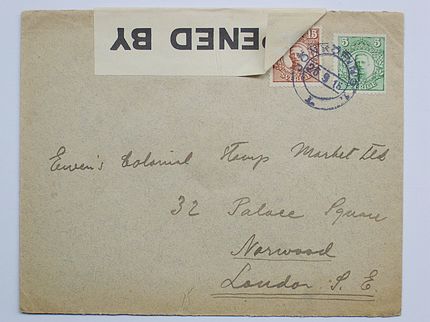 OPENED BY
15
5
26 9 15
Ewen's Colonial Stamp Market Ltd
32 Palace Square
Norwood
London. S. E.